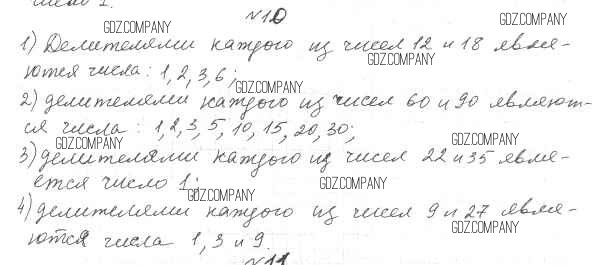 №10
1) Делителями каждого из чисел 12 и 18 явля-
ются числа: 1, 2, 3, 6;
2) делителями каждого из чисел 60 и 90 являют-
ся числа: 1, 2, 3, 5, 10, 15, 20, 30;
3) делителями каждого из чисел 22 и 35 явля-
ется число 1;
4) делителями каждого из чисел 9 и 27 явля-
ются числа 1, 3 и 9.
№11
GDZ.COMPANY
GDZ.COMPANY
GDZ.COMPANY
GDZ.COMPANY
GDZ.COMPANY
GDZ.COMPANY
GDZ.COMPANY
GDZ.COMPANY
GDZ.COMPANY